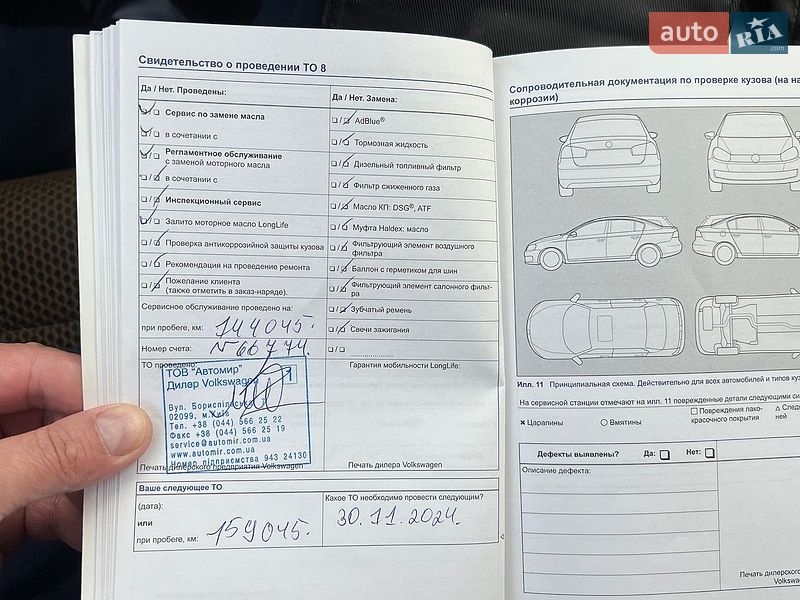 auto RIA .com
Свидетельство о проведении ТО 8
Да / Нет. Проведены:
Сервис по замене масла
в сочетании с
Регламентное обслуживание
с заменой моторного масла
в сочетании с
Инспекционный сервис
Залито моторное масло LongLife
Проверка антикоррозийной защиты кузова
Рекомендация на проведение ремонта
Пожелание клиента
(также отметить в заказ-наряде).
Да / Нет. Замена:
AdBlue®
Тормозная жидкость
Дизельный топливный фильтр
Фильтр сжиженного газа
Масло КП: DSG®, ATF
Муфта Haldex: масло
Фильтрующий элемент воздушного
фильтра
Баллон с герметиком для шин
Фильтрующий элемент салонного фильт-
ра
Зубчатый ремень
Свечи зажигания
Сервисное обслуживание проведено на:
при пробеге, км: 144045.
Номер счета: №66774.
ТО проведено:
ТОВ "Автомир"
Дилер Volkswagen 1
Вул. Бориспільська
02099, м.Київ
Тел. +38 (044) 566 25 22
Факс +38 (044) 566 25 19
service@automir.com.ua
www.automir.com.ua
Номер підприємства 943 24130
Печать дилерского предприятия Volkswagen
Гарантия мобильности LongLife:
Печать дилера Volkswagen
Ваше следующее ТО
(дата):
или
при пробеге, км: 159045.
Какое ТО необходимо провести следующим?
30.11.2024.
Сопроводительная документация по проверке кузова (на на
коррозии)
Илл. 11 Принципиальная схема. Действительно для всех автомобилей и типов куз
На сервисной станции отмечают на илл. 11 поврежденные детали следующими си
Царапины
Вмятины
Повреждения лако-
красочного покрытия
След
ней
Дефекты выявлены? Да: Нет:
Описание дефекта:
Печать дилерског
Volkswa